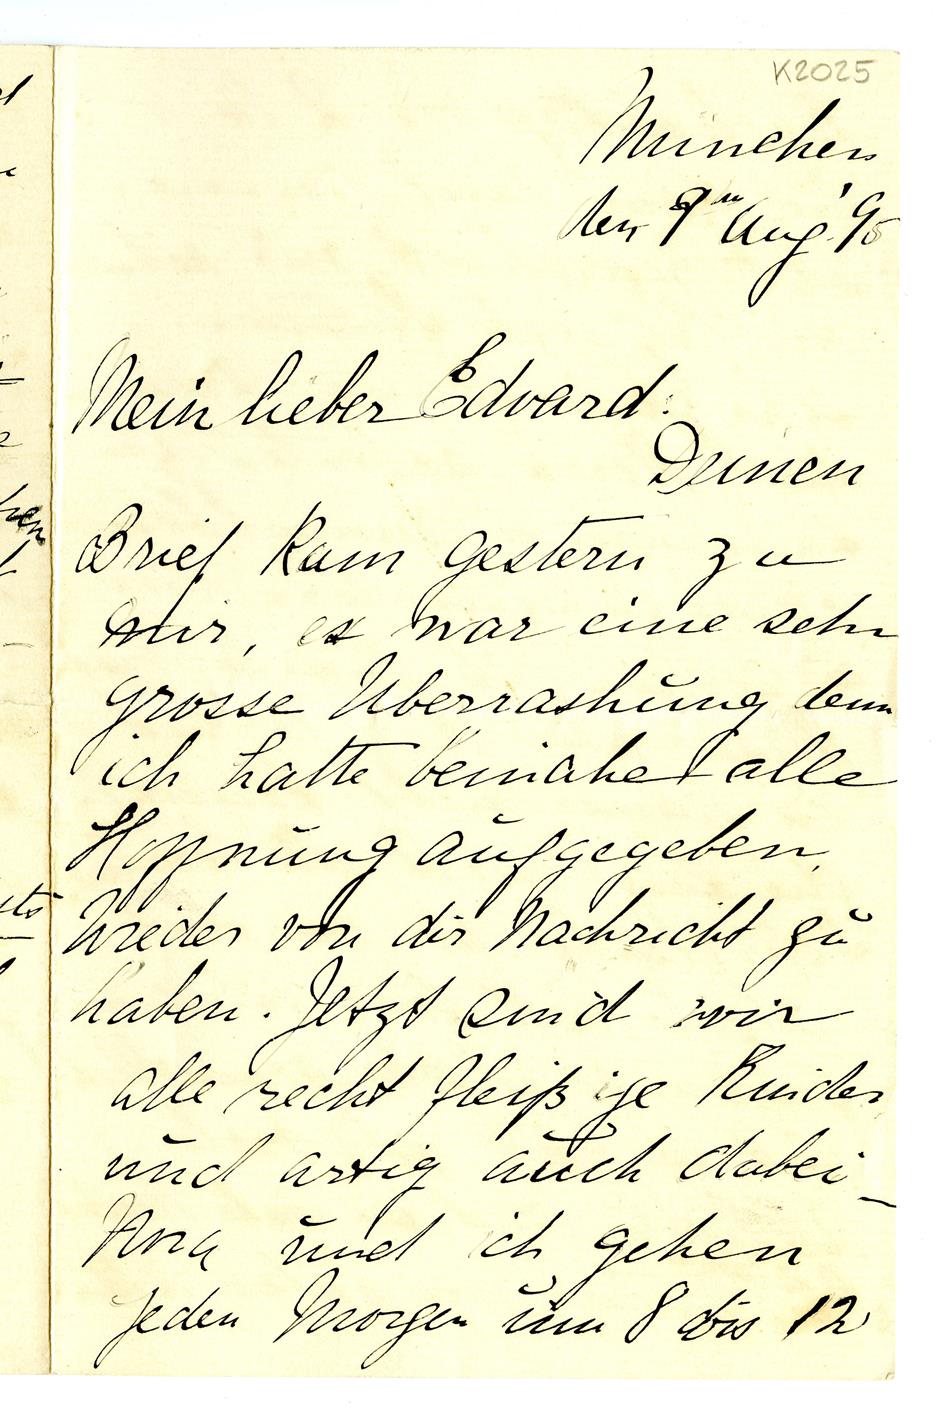 K2025
München
den 9ten Aug. '95
Mein lieber Edvard:
Deinen
Brief kam gestern zu
mir, es war eine sehr
grosse Uberrashŭng denn
ich hatte beinahe alle
Hoffnŭng aŭfgegeben,
wieder von dir Nachricht zŭ
haben. Jetzt sind wir
alle recht fleißige Kinder
ŭnd artig aŭch dabei –
Nora ŭnd ich gehen
jeden Morgen ŭm 8 bis 12